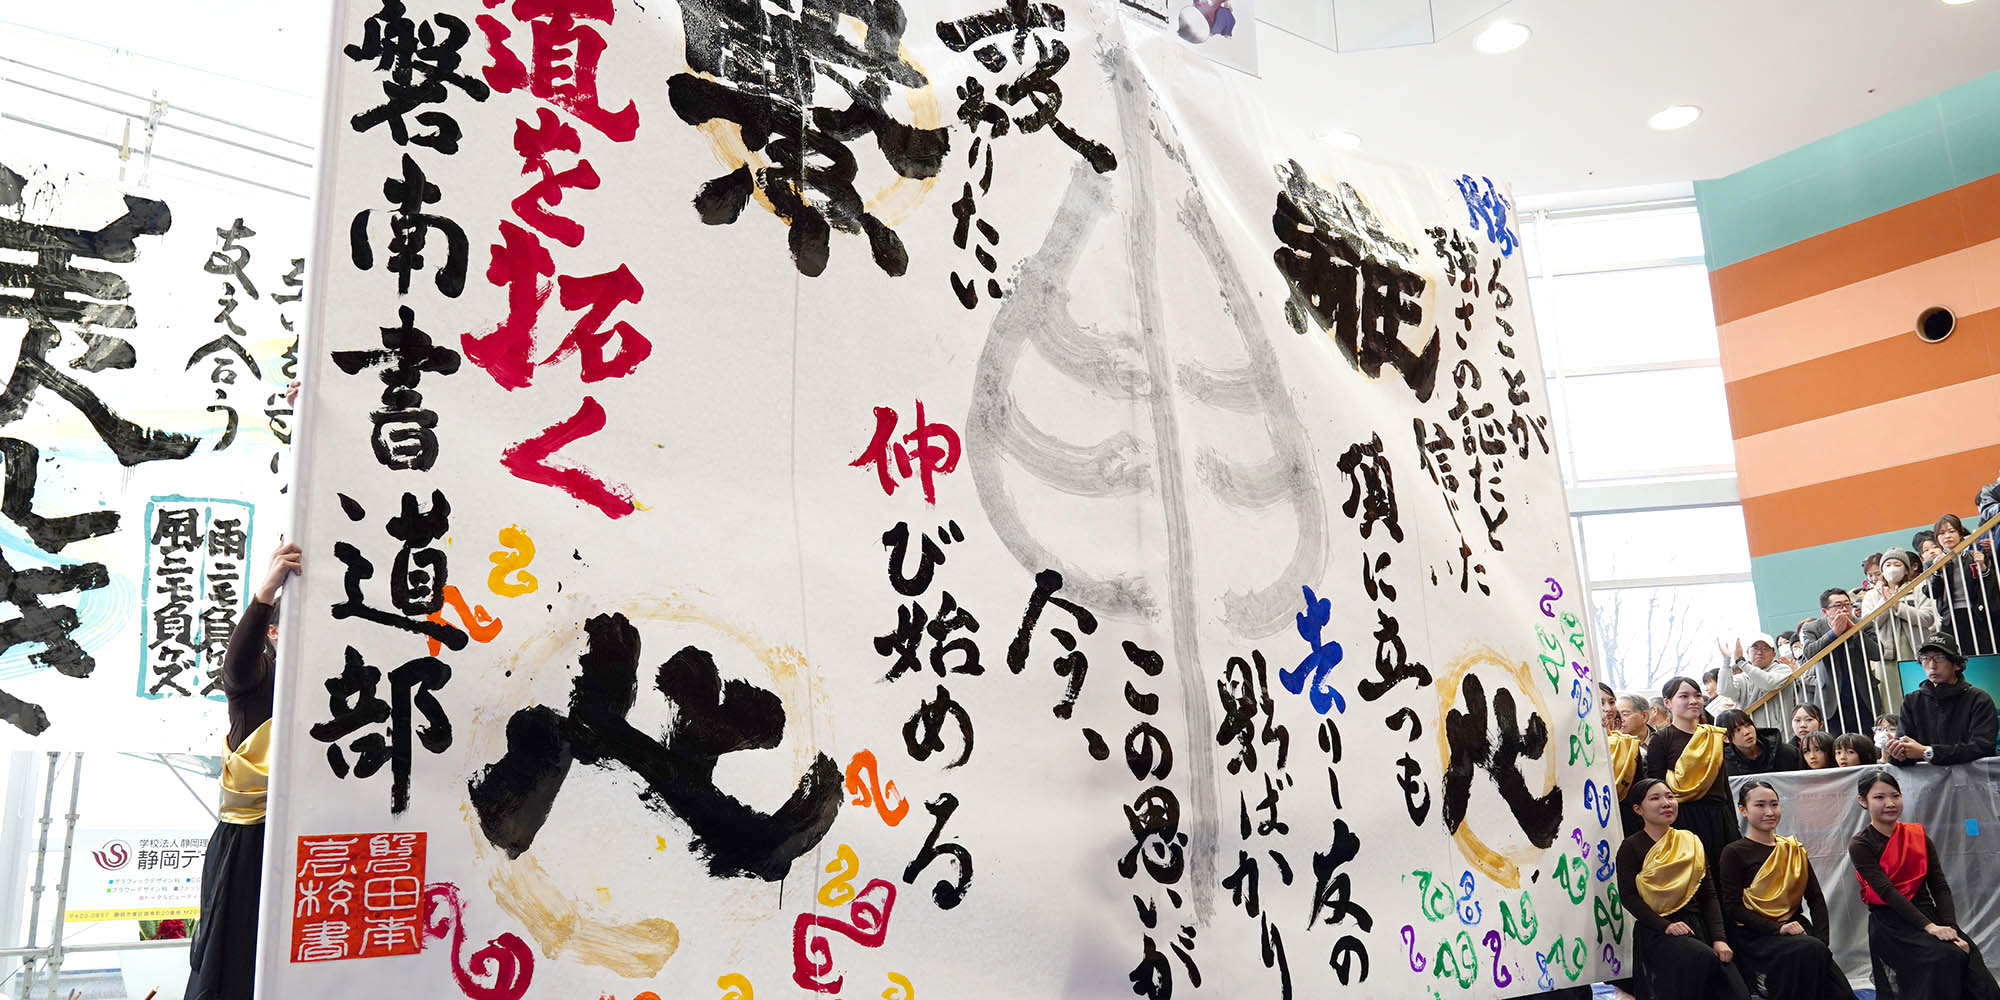 勝ることが
強さの証だと
信じた
頂に立つも
去りし友の
影ばかり
この思いが
今、
変わりたい
伸び始める
道を拓く
磐南書道部
心
心
磐田南
高校書
支え合う
雨ニモ負ケズ
風ニモ負ケズ
学校法人静岡理
静岡デ